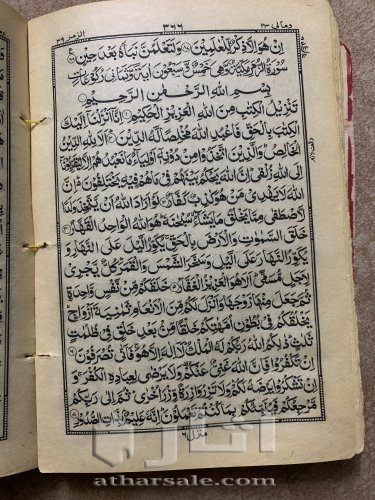 الزمر ٣٩
٣٦٦
ومالى ٢٣
اِنْ هُوَ اِلَّا ذِكْرٌ لِّلْعٰلَمِيْنَ وَلَتَعْلَمُنَّ نَبَاَهٗ بَعْدَ حِيْنٍ
سُوْرَةُ الزُّمَرِ مَكِّيَّةٌ وَّهِيَ خَمْسٌ وَّسَبْعُوْنَ اٰيَةً وَّثَمَانِيْ رُكُوْعَاتٍ
بِسْمِ اللّٰهِ الرَّحْمٰنِ الرَّحِيْمِ
تَنْزِيْلُ الْكِتٰبِ مِنَ اللّٰهِ الْعَزِيْزِ الْحَكِيْمِ اِنَّا اَنْزَلْنَا اِلَيْكَ
الْكِتٰبَ بِالْحَقِّ فَاعْبُدِ اللّٰهَ مُخْلِصًا لَّهُ الدِّيْنَ اَلَا لِلّٰهِ الدِّيْنُ
الْخَالِصُ وَالَّذِيْنَ اتَّخَذُوْا مِنْ دُوْنِهٖ اَوْلِيَآءَ مَا نَعْبُدُهُمْ اِلَّا لِيُقَرِّبُوْنَا
اِلَى اللّٰهِ زُلْفٰى اِنَّ اللّٰهَ يَحْكُمُ بَيْنَهُمْ فِيْ مَا هُمْ فِيْهِ يَخْتَلِفُوْنَ اِنَّ
اللّٰهَ لَا يَهْدِيْ مَنْ هُوَ كٰذِبٌ كَفَّارٌ لَوْ اَرَادَ اللّٰهُ اَنْ يَّتَّخِذَ وَلَدًا
لَّاصْطَفٰى مِمَّا يَخْلُقُ مَا يَشَآءُ سُبْحٰنَهٗ هُوَ اللّٰهُ الْوَاحِدُ الْقَهَّارُ
خَلَقَ السَّمٰوٰتِ وَالْاَرْضَ بِالْحَقِّ يُكَوِّرُ الَّيْلَ عَلَى النَّهَارِ وَ
يُكَوِّرُ النَّهَارَ عَلَى الَّيْلِ وَسَخَّرَ الشَّمْسَ وَالْقَمَرَ كُلٌّ يَّجْرِيْ
لِاَجَلٍ مُّسَمًّى اَلَا هُوَ الْعَزِيْزُ الْغَفَّارُ خَلَقَكُمْ مِّنْ نَّفْسٍ وَّاحِدَةٍ
ثُمَّ جَعَلَ مِنْهَا زَوْجَهَا وَاَنْزَلَ لَكُمْ مِّنَ الْاَنْعَامِ ثَمٰنِيَةَ اَزْوَاجٍ
يَخْلُقُكُمْ فِيْ بُطُوْنِ اُمَّهٰتِكُمْ خَلْقًا مِّنْ بَعْدِ خَلْقٍ فِيْ ظُلُمٰتٍ
ثَلٰثٍ ذٰلِكُمُ اللّٰهُ رَبُّكُمْ لَهُ الْمُلْكُ لَا اِلٰهَ اِلَّا هُوَ فَاَنّٰى تُصْرَفُوْنَ
اِنْ تَكْفُرُوْا فَاِنَّ اللّٰهَ غَنِيٌّ عَنْكُمْ وَلَا يَرْضٰى لِعِبَادِهِ الْكُفْرَ وَ
اِنْ تَشْكُرُوْا يَرْضَهُ لَكُمْ وَلَا تَزِرُ وَازِرَةٌ وِّزْرَ اُخْرٰى ثُمَّ اِلٰى رَبِّكُمْ
مَّرْجِعُكُمْ فَيُنَبِّئُكُمْ بِمَا كُنْتُمْ تَعْمَلُوْنَ اِنَّهٗ عَلِيْمٌ بِذَاتِ الصُّدُوْرِ
منزل ٦
atharsale.com